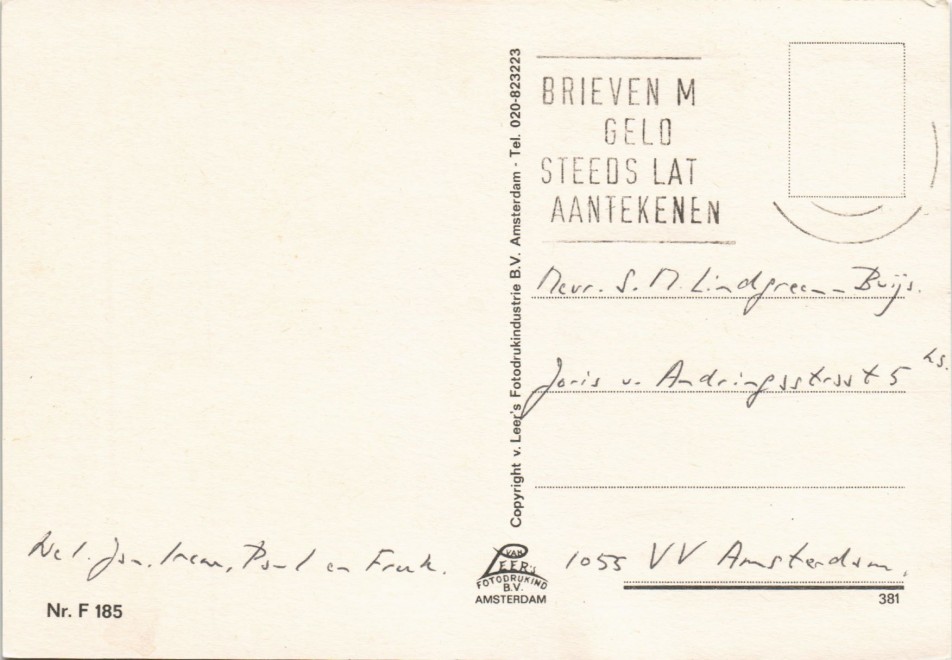 BRIEVEN M
GELD
STEEDS LAT
AANTEKENEN
Copyright v. Leer's Fotodrukindustrie B.V. Amsterdam - Tel. 020-823223
Mevr. S. M. Lindgreen-Buijs.
Joris v. Andringastraat 5 hs.
Jan, Irene, Paul en Frank.
VAN
LEER'S
FOTODRUKIND
B.V.
AMSTERDAM
1055 VV Amsterdam.
Nr. F 185
381